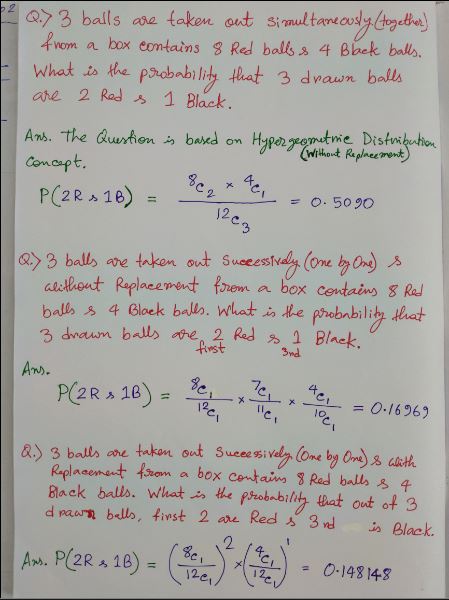 Q.> 3 balls are taken out simultaneously (together)
from a box contains 8 Red balls & 4 Black balls.
What is the probability that 3 drawn balls
are 2 Red & 1 Black.
Ans. The Question is based on Hypergeometric Distribution
Concept. (Without Replacement)
P(2R & 1B) = (⁸C₂ × ⁴C₁) / ¹²C₃ = 0.5090
Q.> 3 balls are taken out Successively (One by One) &
without Replacement from a box contains 8 Red
balls & 4 Black balls. What is the probability that
3 drawn balls are 2 Red & 1 Black.
first 3rd
Ans.
P(2R & 1B) = ⁸C₁/¹²C₁ × ⁷C₁/¹¹C₁ × ⁴C₁/¹⁰C₁ = 0.16969
Q.> 3 balls are taken out Successively (One by One) & with
Replacement from a box contains 8 Red balls & 4
Black balls. What is the probability that out of 3
drawn balls, first 2 are Red & 3rd is Black.
Ans. P(2R & 1B) = (⁸C₁/¹²C₁)² × (⁴C₁/¹²C₁)¹ = 0.148148